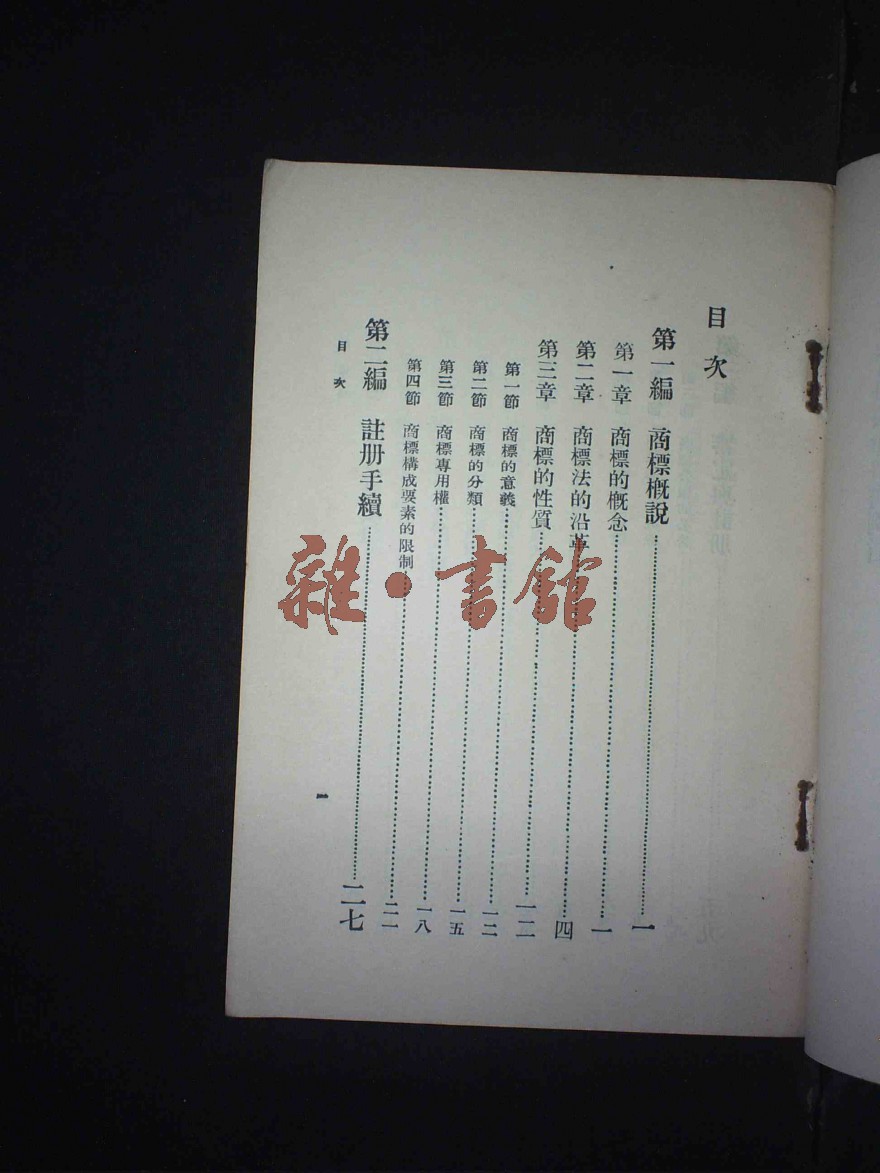 目次
第一編 商標概說 一
第一章 商標的概念 一
第二章 商標法的沿革 四
第三章 商標的性質 一二
第一節 商標的意義 一二
第二節 商標的分類 一五
第三節 商標專用權 一八
第四節 商標構成要素的限制 二一
第二編 註册手續 二七
目次
一
雜·書館